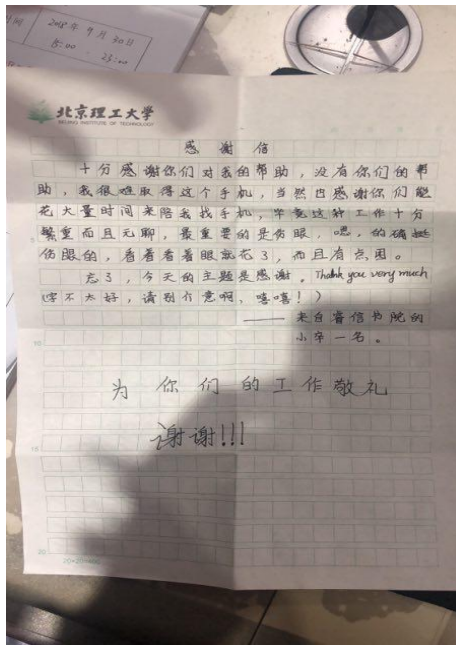 时间
2018年9月30日
15:00
23:00
北京理工大学
BEIJING INSTITUTE OF TECHNOLOGY
感谢信
十分感谢你们对我的帮助,没有你们的帮
助,我很难取得这个手机,当然也感谢你们能
花大量时间来陪我找手机,毕竟这种工作十分
繁重而且无聊,最重要的是伤眼,嗯,的确挺
伤眼的,看着看着眼就花了,而且有点困。
忘了,今天的主题是感谢。Thank you very much
(字不太好,请别介意啊,嘻嘻!)
——来自睿信书院的
小卒一名。
为你们的工作敬礼
谢谢!!!
5
10
15
20